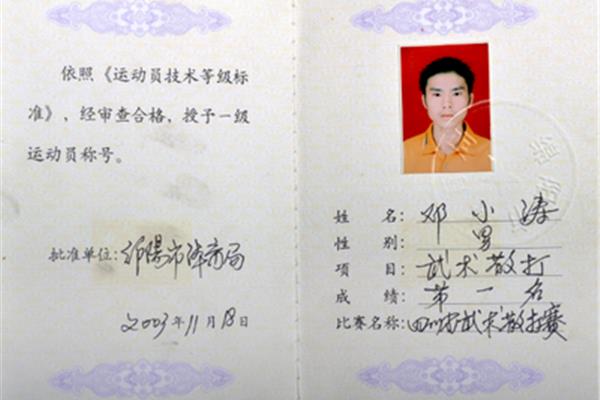 依照《运动员技术等级标
准》，经审查合格，授予一级
运动员称号。
批准单位：阳市体育局
2003年11月18日
姓　名：邓小涛
性　别：男
项　目：武术散打
成　绩：第一名
比赛名称：四川省武术散打赛